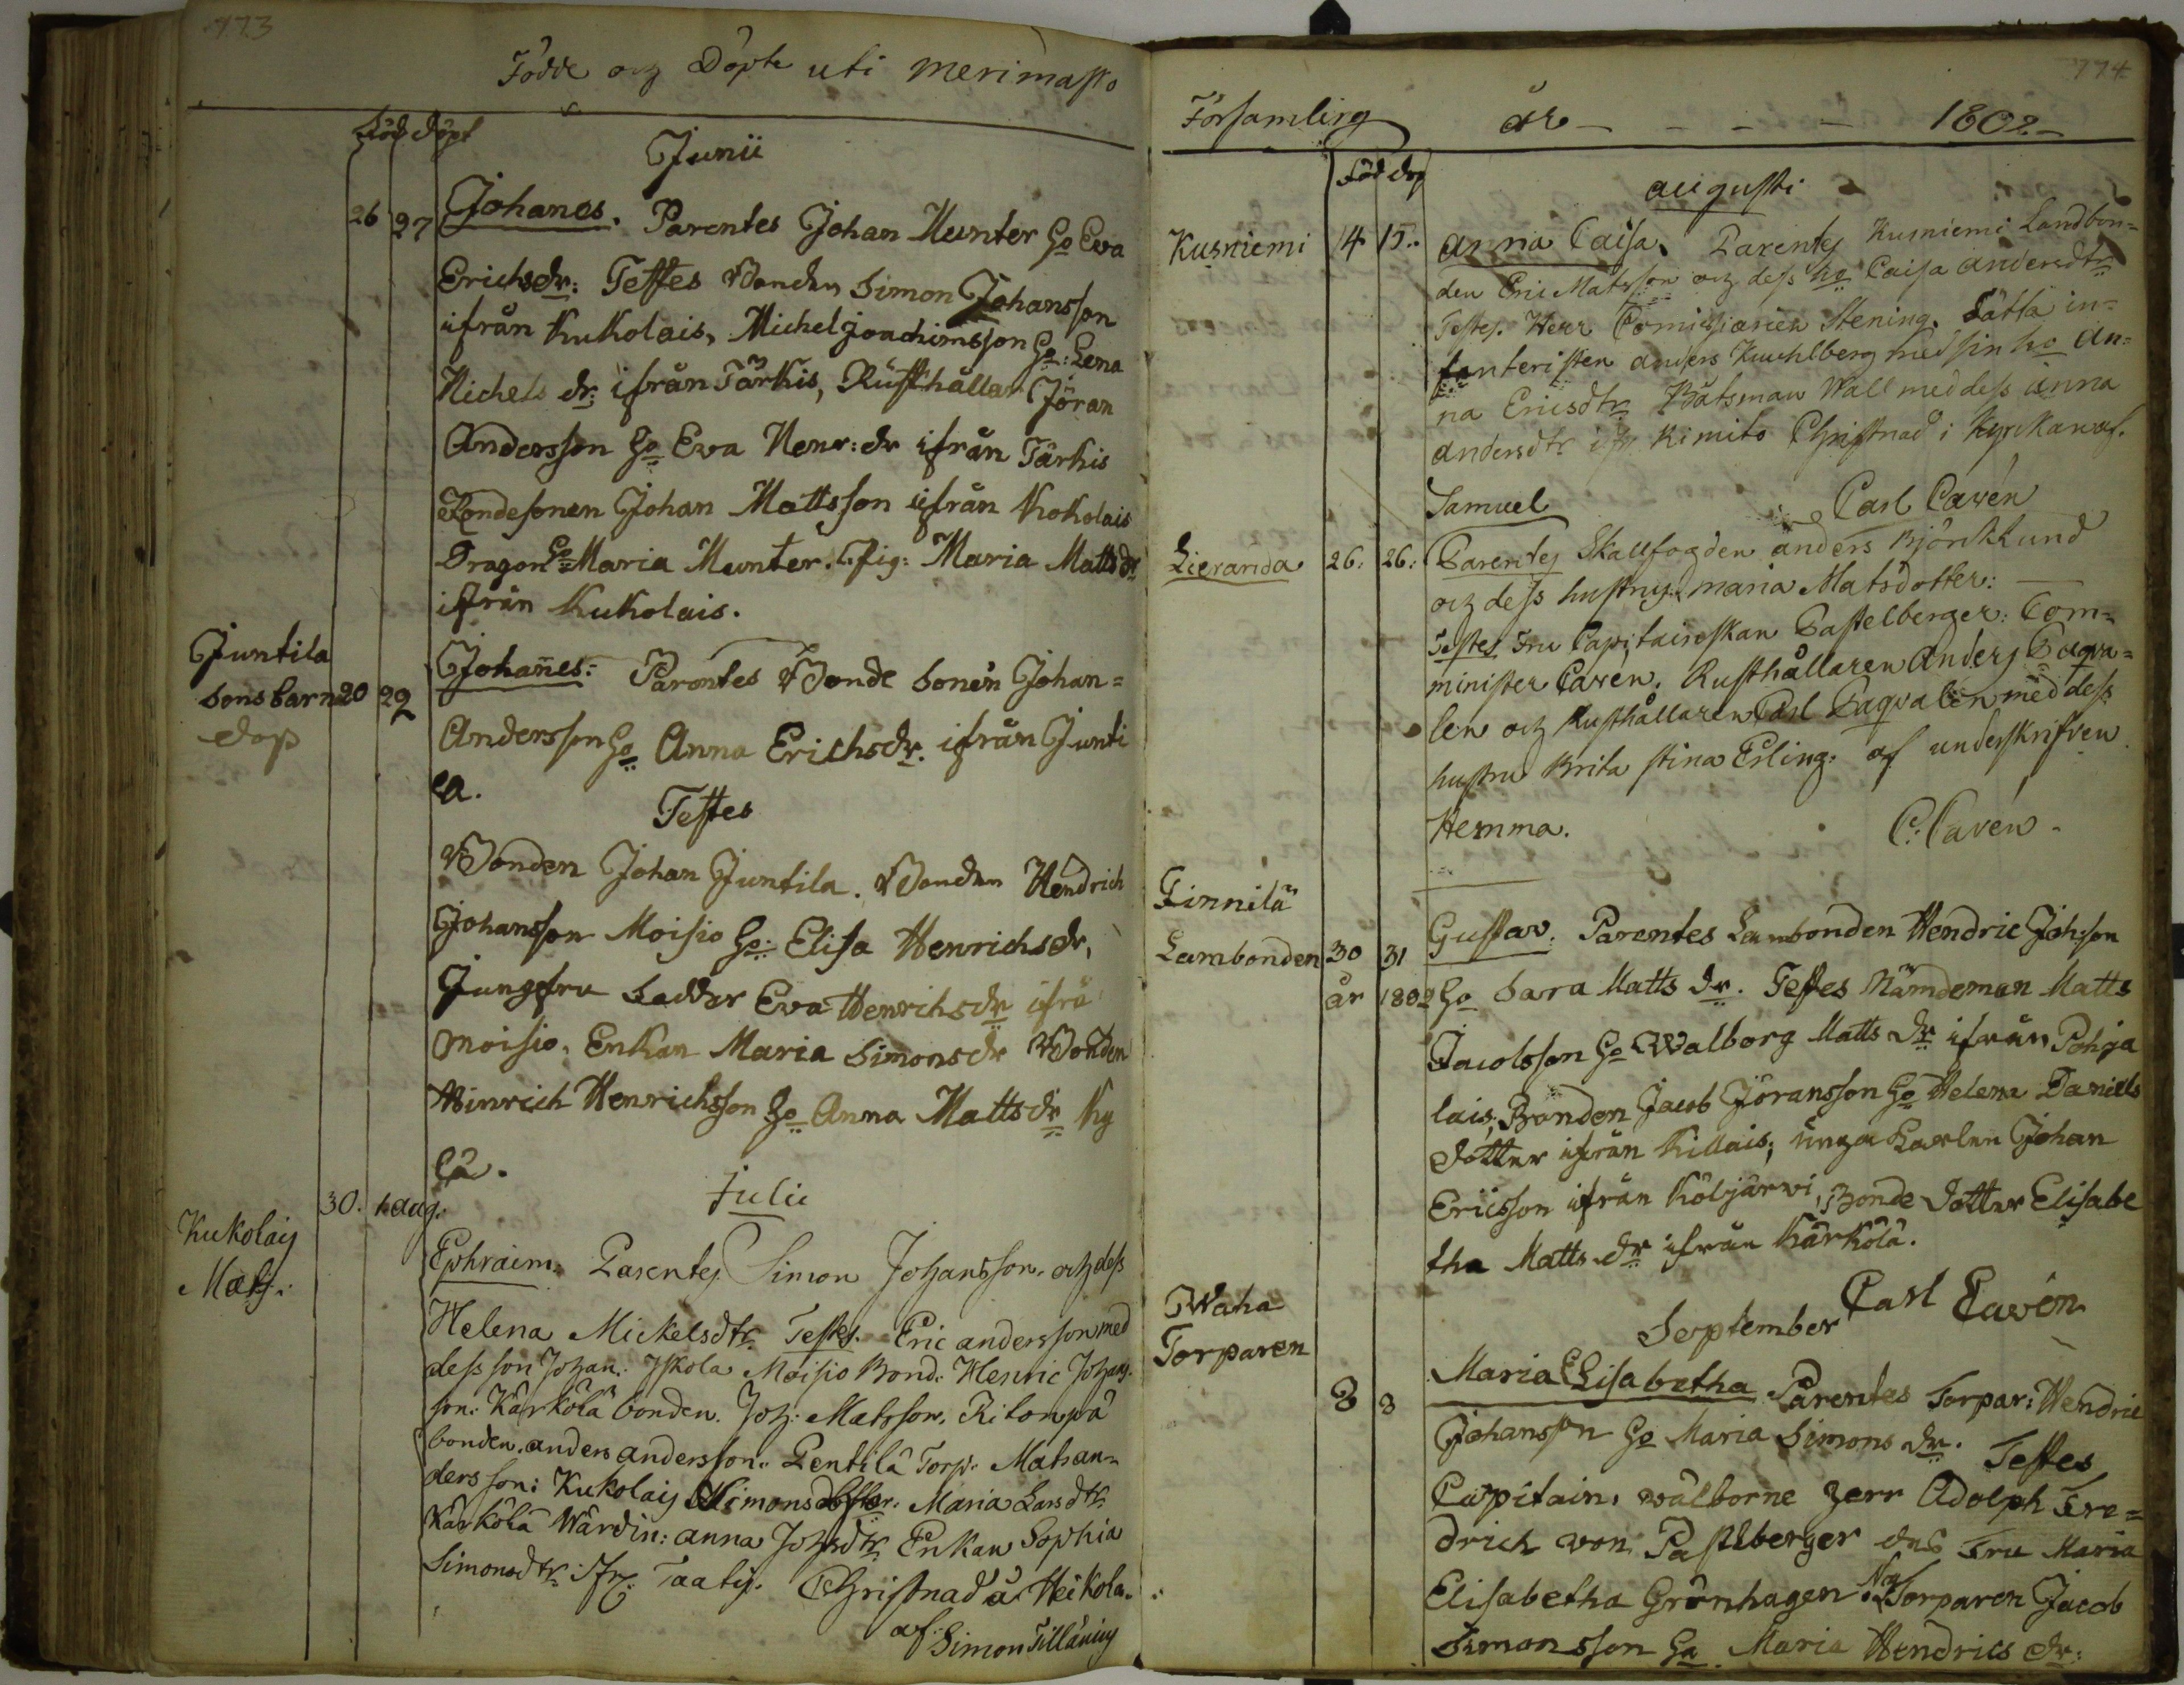 773
Födde och Döpte uti Merimasko
Född döpt
Junii
26 27 Johanes. Parentes Johan Munter Ho Eva
Erichsdr: Testes Bonden Simon Johansson
ifrån Kukolais, Michel Joachimsson Ho: Lena
Michels dr: ifrån Tärkis, Rusthållar Jöran
Andersson Ho Eva Henr: dr ifrån Tärkis
Bondesonen Johan Mattsson ifrån Kokolais
Dragon Ho Maria Munter. Pig: Maria Matts dr
ifrån Kukolais.
Juntila
sons barn 20 22 Johanes: Parentes Bonde Sonen Johan=
dop
Andersson Ho Anna Erichsdr. ifrån Junti
la.
Testes
Bonden Johan Juntila. Bonden Hendrich
Johansson Moisio Ho: Elisa Henrichsdr,
Jungfru Eva Henrichsdr ifrå
Moisio. Enkan Maria Simonsdr Bonden
Hinrich Henrichsson Ho Anna Mattsdr Ky
lä.
Julii
Kukolais
Mats.
30. aug:
Ephraim. Parentes Simon Johansson. och dess
Helena Mickelsdtr. Testes. Eric andersson med
dess son Johan: Yskola Moisio Bond. Henric Johans
son: Kärkölä bonden. Joh: Matsson. Ritonpä
bonden. anders andersson. Pentilä Torp. Mats an=
dersson: Kukolais Simonsdotter. Maria Larsdtr
Kärkölä Wärdin: anna Johsdtr Enkan Sophia
Simonsdtr. Ifr: Taatis. Christnad a Heikola.
af: Simon Tilläning
774
Församling år - - - - 1802-
Föd dop
augusti
Kusniemi 14 15. anna Caisa. Parentes Kusniemi Landbon=
den Eric Matsson och dess ho Caisa andersdtr
Testes. Herr Comissarien Stening. Lätta in=
fanteristen anders Kuuhlberg med sin ho An=
na Ericsdtr Båtsman Wall med dess anna
andersdtr ifr Kimito Christnad i Kyrkan af.
Samuel Carl Cavén
Lieranda 26. 26. Parentes Skallfogden anders Björcklund
och dess hustru maria Matsdotter:
Testes Fru Capitainskan Pastelberger: Com=
minister Cavén, Rusthållaren Anders Dagva=
len och Rusthållaren Carl Dagvalén med dess
hustru Brita stina Erling: af underskrifven
Hemma. C: Cavén
Finnilä
Lambonden 30 31 Gustav. Parentes Lambonden Hendric Johsson
år 1802 Ho Sara Matts dr. Testes Nämdeman Matts
Jacobsson Ho Walborg Matts dr ifrån Pohja
lais; Bonden Jacob Jöransson Ho Helena Daniels
dotter ifrån Killais; unga Karlen Johan
Ericsson ifrån Köljärvi, Bonde dotter Elisabe
tha Matts dr ifrån Kärkölä.
Carl Cavén
September
Waha
Torparen
3 3 Maria Elisabetha Parentes Torpar: Hendric
Johansson Ho Maria Simons dr. Testes
Capitain, wälborne herr Adolph Fre=
drich von Pastelberger des Fru Maria
Elisabetha Grönhagen. Torparen Jacob
Simonsson Ho Maria Hendrics dr: